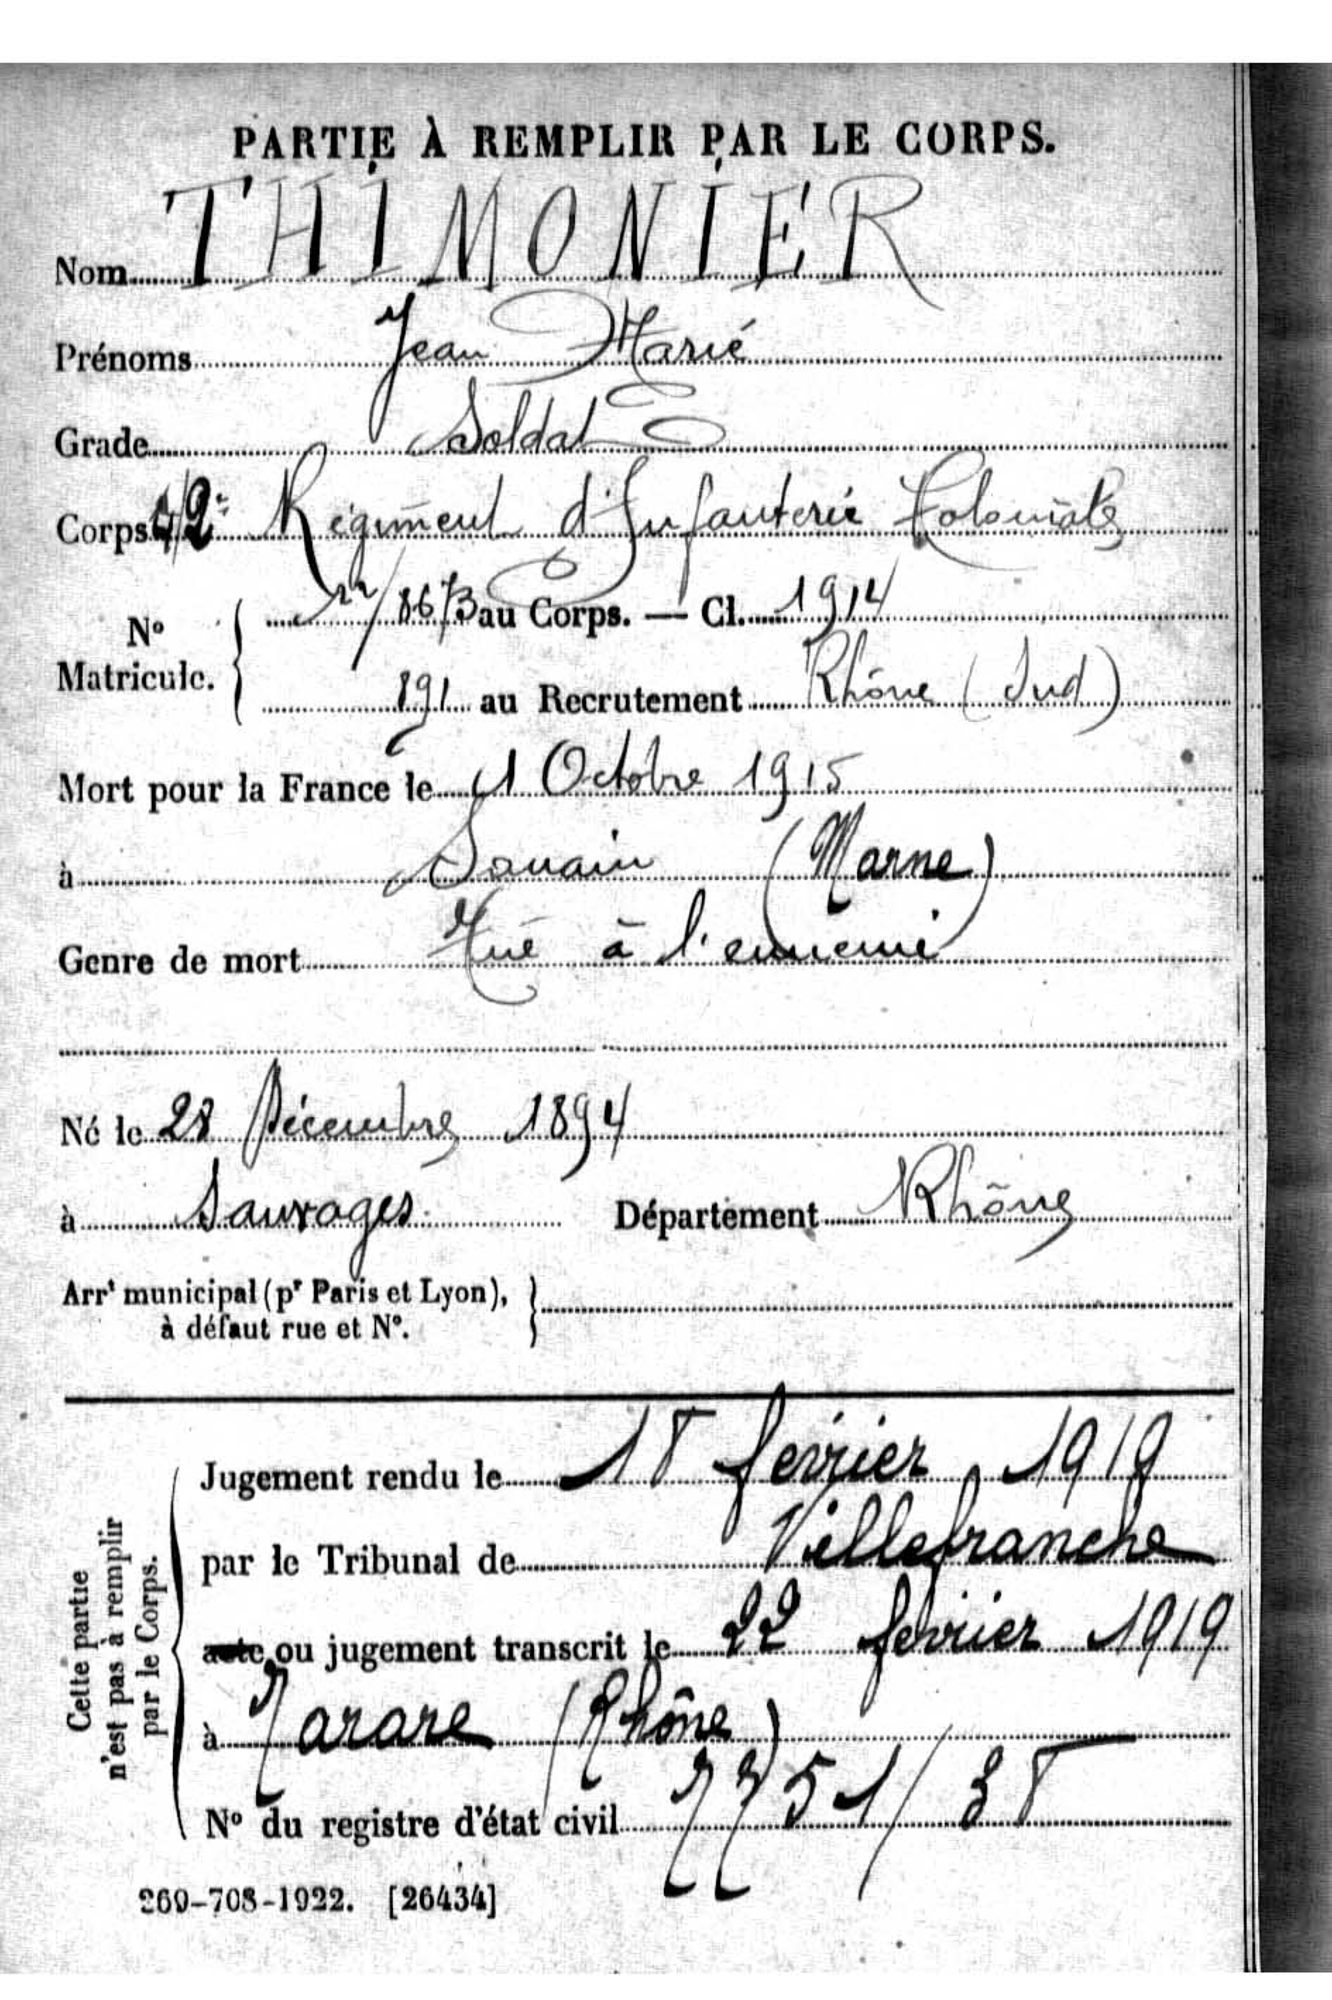 PARTIE À REMPLIR PAR LE CORPS.
Nom THIMONIER
Prénoms Jean Marie
Grade Soldat
Corps 42e Régiment d'Infanterie Coloniale
No Matricule. 22/8673 au Corps. — Cl. 1914
891 au Recrutement Rhône (Sud)
Mort pour la France le 1 Octobre 1915
à Souain (Marne)
Genre de mort Tué à l'ennemi
Né le 28 Décembre 1894
à Sauvages Département Rhône
Arrt municipal (pr Paris et Lyon),
à défaut rue et No.
Cette partie
n'est pas à remplir
par le Corps.
Jugement rendu le 18 fevrier 1919
par le Tribunal de Villefranche
acte ou jugement transcrit le 22 fevrier 1919
à Tarare (Rhône)
No du registre d'état civil
269-708-1922. [26434]